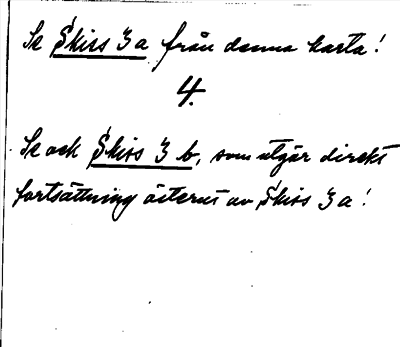 Se Skiss 3a från denna karta!
4.
Se och Skiss 3 b, som utgör direkt
fortsättning österut av Skiss 3a!